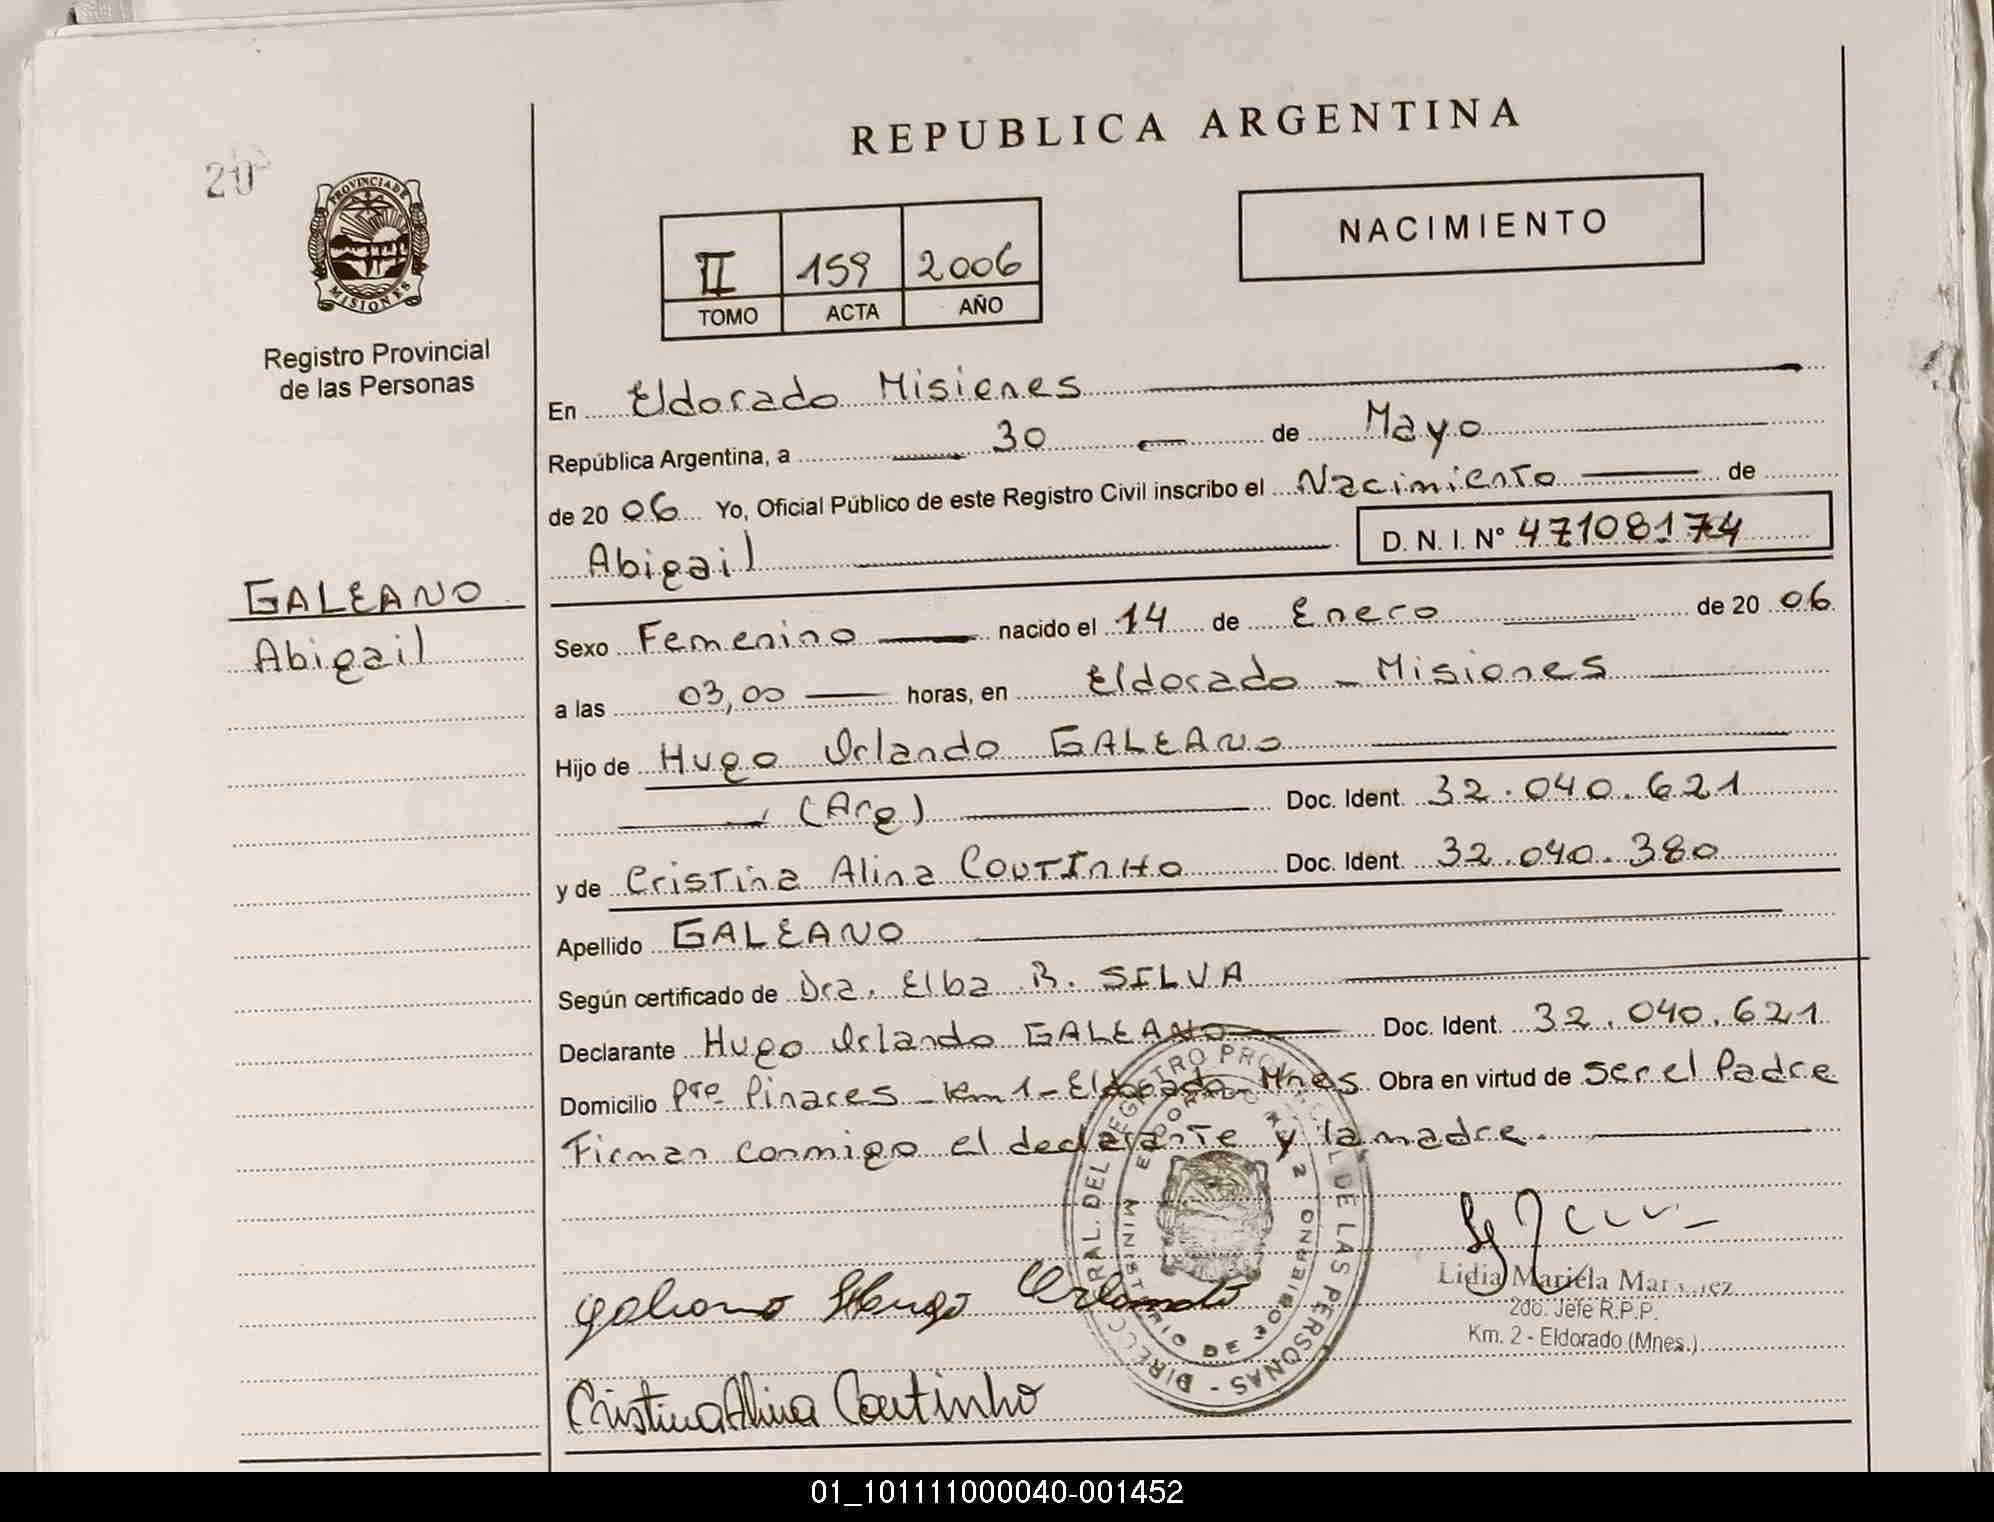 REPUBLICA ARGENTINA
20
PROVINCIA DE
MISIONES
Registro Provincial
de las Personas
NACIMIENTO
II 159 2006
TOMO ACTA AÑO
En Eldorado Misiones
República Argentina, a 30 de Mayo
de 20 06 Yo, Oficial Público de este Registro Civil inscribo el Nacimiento de
Abigail D. N. I. N° 47108174
GALEANO
Abigail
Sexo Femenino nacido el 14 de Enero de 20 06
a las 03,00 horas, en Eldorado - Misiones
Hijo de Hugo Orlando GALEANO
(Arg) Doc. Ident. 32.040.621
y de Cristina Alina COUTINHO Doc. Ident. 32.040.380
Apellido GALEANO
Según certificado de Dra. Elba R. SILVA
Declarante Hugo Orlando GALEANO Doc. Ident. 32.040.621
Domicilio Pto Pinares - Km 1 - Eldorado - Mnes. Obra en virtud de Ser el Padre
Firman conmigo el declarante y la madre.
DIRECC GRAL. DEL REGISTRO PROVINCIAL DE LAS PERSONAS -
MINISTERIO DE GOBIERNO
ELDORADO KM. 2
Lidia Mariela
2do. Jefe R.P.P.
Km. 2 - Eldorado (Mnes.)
galeano Hugo Orlando
Cristina Alina Coutinho
01_101111000040-001452